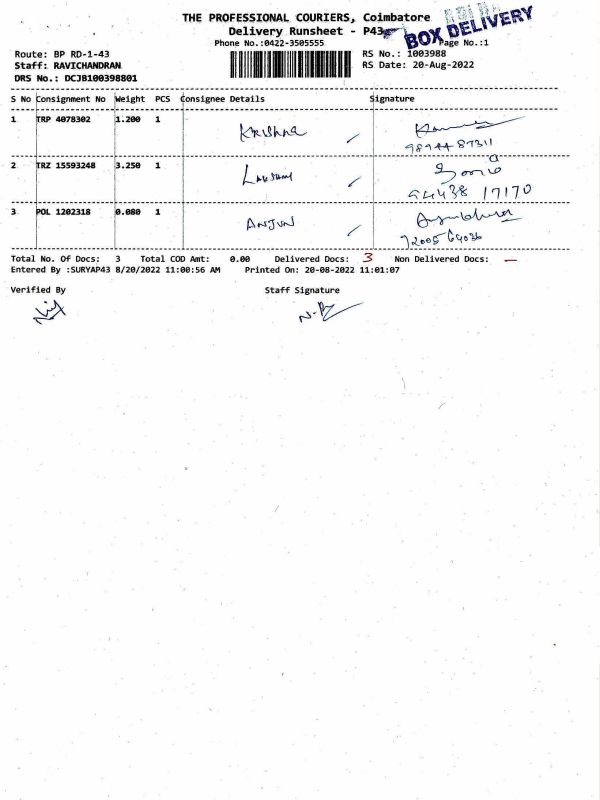 THE PROFESSIONAL COURIERS, Coimbatore
Delivery Runsheet - P43
BOX DELIVERY
Phone No.:0422-3505555
Page No.:1
Route: BP RD-1-43
RS No.: 1003988
Staff: RAVICHANDRAN
RS Date: 20-Aug-2022
DRS No.: DCJB100398801
S No Consignment No Weight PCS Consignee Details Signature
1 TRP 4078302 1.200 1 Krishna
98944 87311
2 TRZ 15593248 3.250 1 Lakshmi
94438 17170
3 POL 1202318 0.080 1 ANJUN
72005 64036
Total No. Of Docs: 3 Total COD Amt: 0.00 Delivered Docs: 3 Non Delivered Docs: —
Entered By :SURYAP43 8/20/2022 11:00:56 AM Printed On: 20-08-2022 11:01:07
Verified By Staff Signature